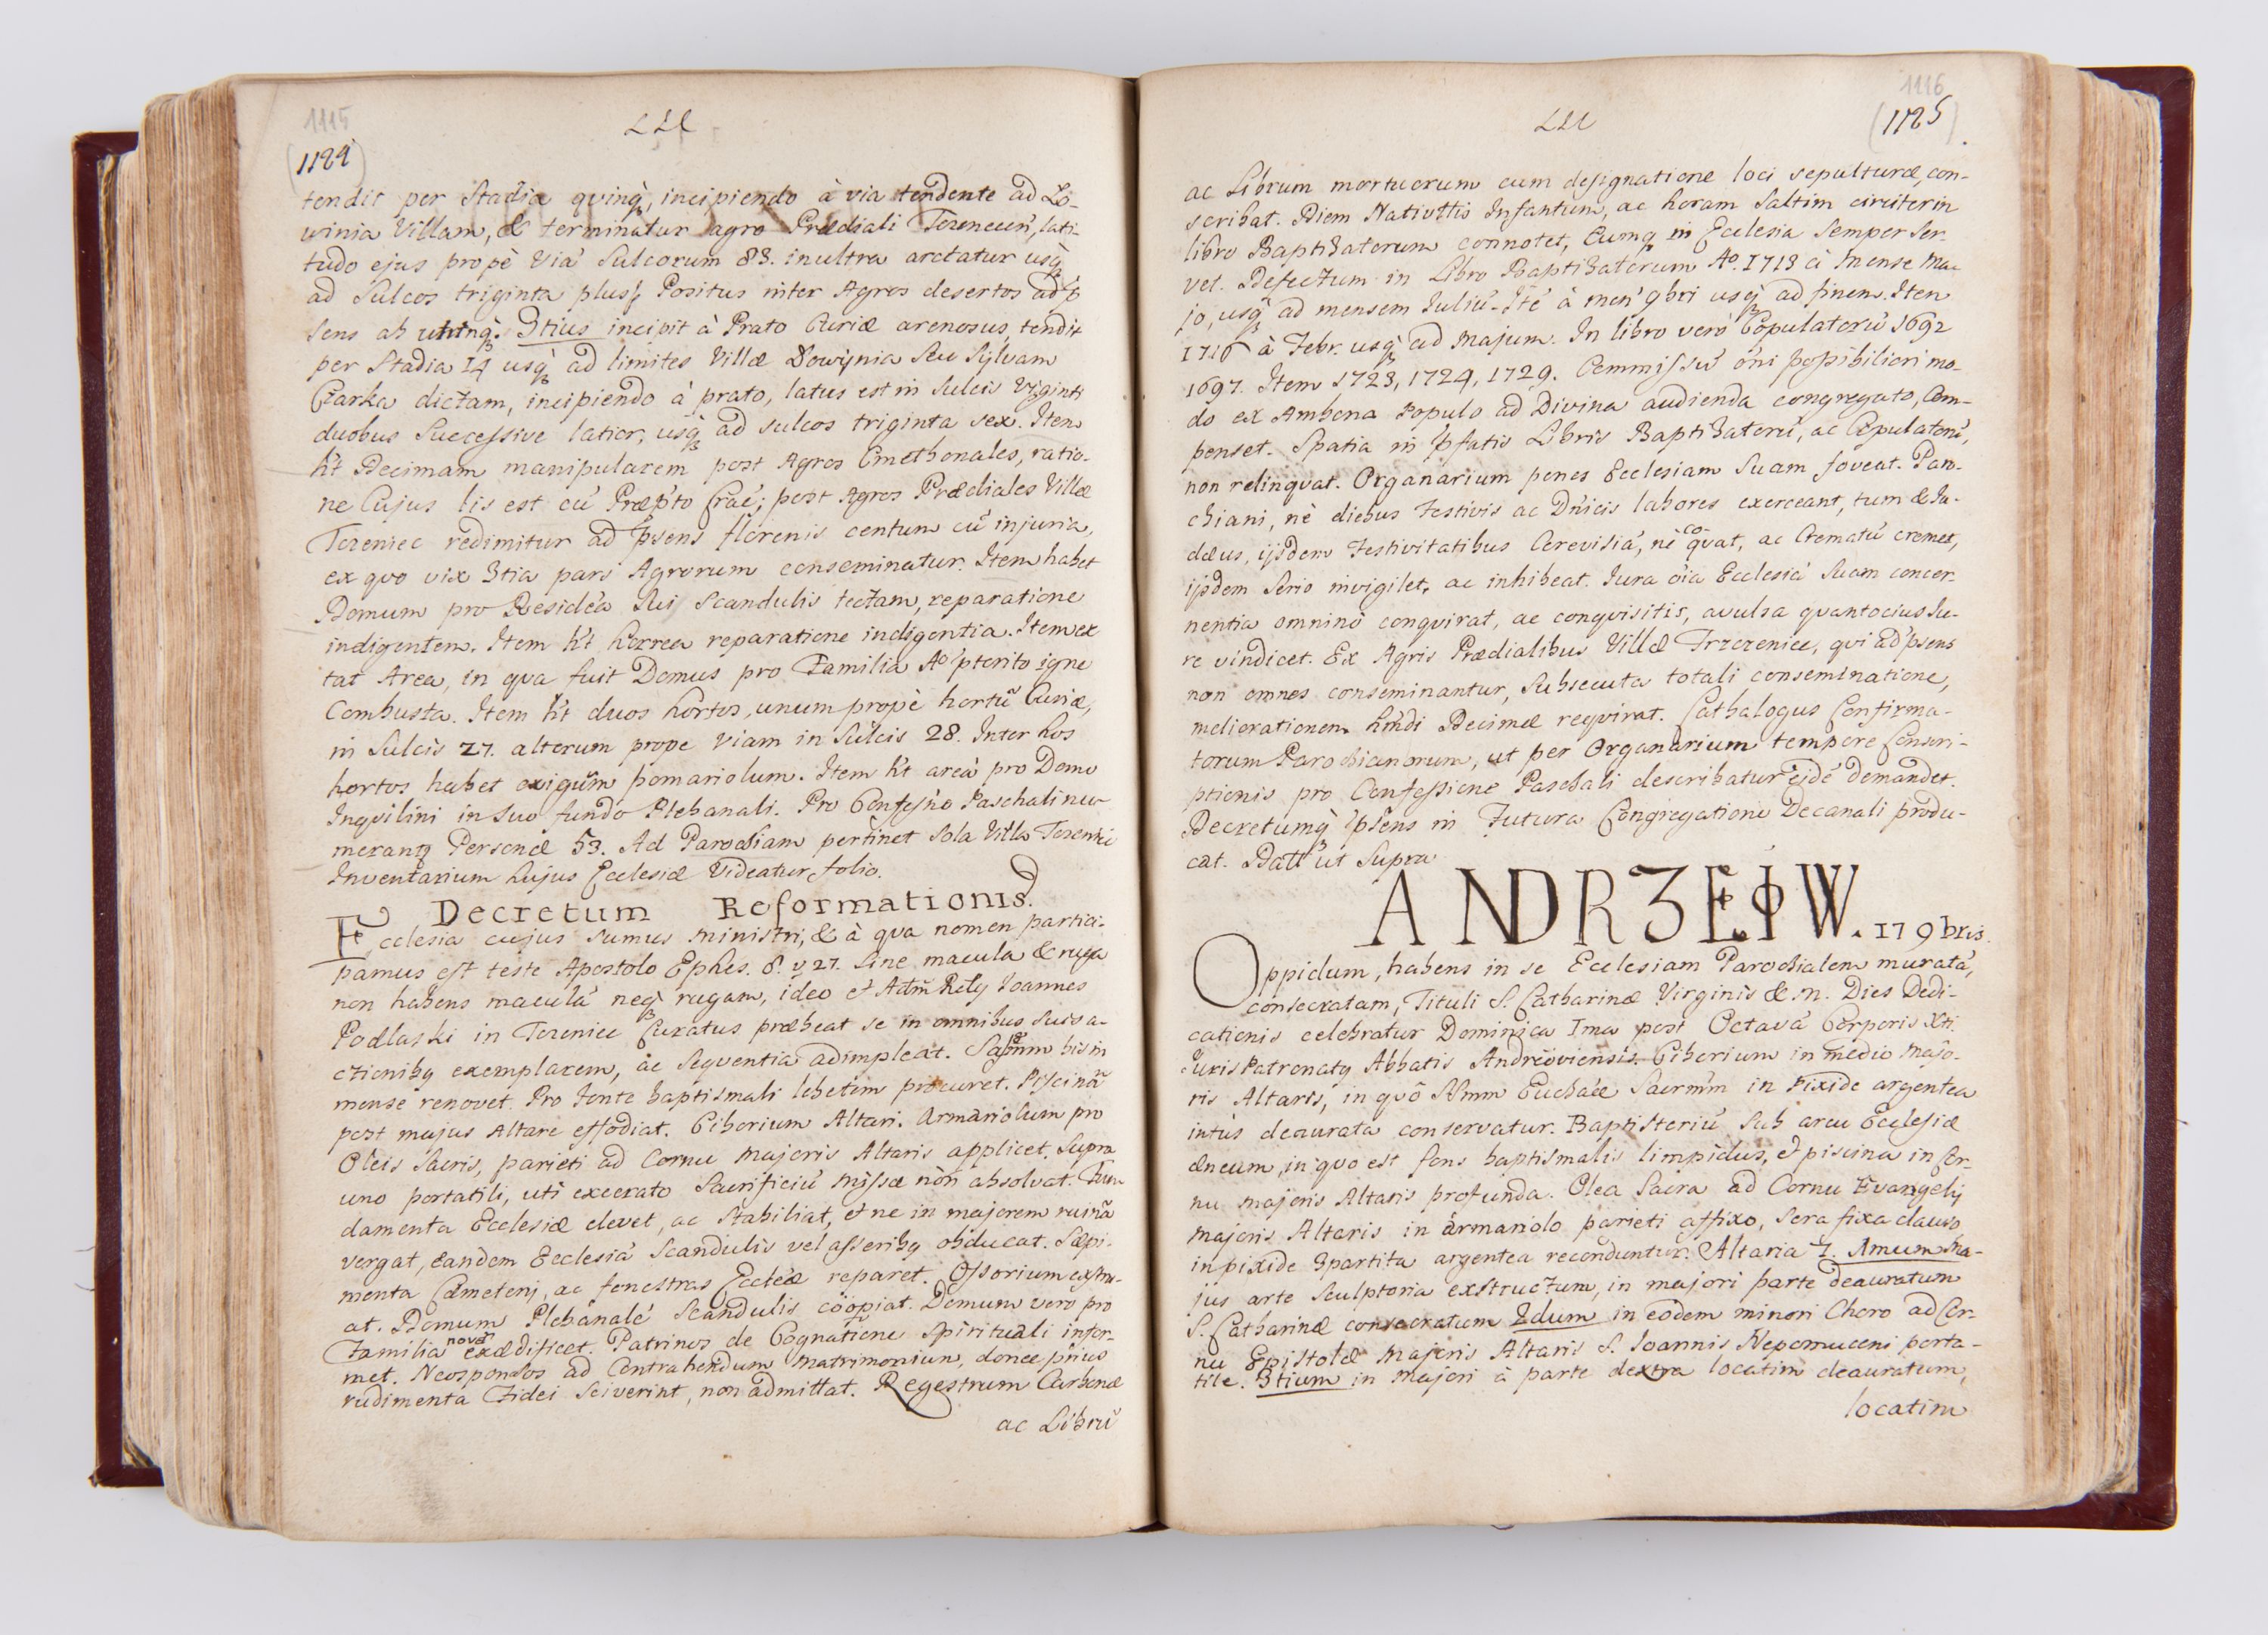 1115
LLL
(1124)
tendit per Stadia qvinq̃, incipiendo à via tendente ad Lo-
winia Villam, & terminatur agro Prædiali Tereneciẽ, lati-
tudo ejus propè Viã Sulcorum 83. inultra arctatur usq̃
ad Sulcos triginta plus, Positus inter Agros desertos ad p̃
sens ab utrinq̃. 3tius incipit à Prato Curiæ arenosus, tendit
per Stadia 14 usq̃ ad limites Villæ Dowynia seu Sylvam
Czarka dictam, incipiendo à prato, latus est in sulcis Viginti
duobus Successive latior, usq̃ ad sulcos triginta sex. Item
h̃t Decimam manipularem post Agros Cmethonales, ratio-
ne Cujus lis est cũ Præp̃to Craẽ; post Agros Prædiales Villæ
Tereniec redimitur ad p̃sens florenis centum cũ injuria,
ex qvo vix 3tia pars Agrorum conseminatur. Item habet
Domum pro Resideã Sui Scandulis tectam, reparatione
indigentem. Item h̃t horrea reparatione indigentia. Item ex
tat Area, in qva fuit Domus pro Familia Aº p̃terito igne
Combusta. Item h̃t duos hortos, unum propè hortũ Curiæ,
in Sulcis 27. alterum prope Viam in Sulcis 28. Inter hos
hortos habet exigũm pomariolum. Item h̃t areã pro Domo
Inqvilini in suo fundo Plebanali. Pro Confesño Paschali nu-
merantq Personæ 53. Ad Parochiam pertinet sola Villa Tereniec
Inventarium hujus Ecclesiæ Videatur folio.
Decretum Reformationis.
Ecclesia cujus sumus ministri, & à qva nomen partici-
pamus est teste Apostolo Ephes. 6. v 27. sine macula & ruga
non habens maculã neq̃ rugam, ideo et Adm̃ Rdg Joannes
Podlaski in Tereniec Curatus præbeat se in omnibus suis a-
ctionibq exemplarem, ac Seqventia adimpleat. Sãpmm bis in
mense renovet. Pro Fonte baptismali lebetem procuret. Piscinã
post majus Altare effodiat. Ciborium Altari. Armariolum pro
Oleis Sacris, parieti ad Cornu Majoris Altaris applicet. Supra
uno portatili, uti execrato Sacrificiũ Missæ nõn absolvat. Fun-
damenta Ecclesiæ elevet, ac stabiliat, et ne in majorem ruinã
vergat, eandem Ecclesiã Scandulis vel asseribq obducat. Sæpi-
menta Cæmeterij, ac fenestras Ecclẽæ reparet. Ossorium extru-
at. Domum Plebanalẽ Scandulis cõõpiat. Domum vero pro
Familia novã exædificet. Patrinos de Cognatione Spirituali infor-
met. Neosponsos ad Contrahendum matrimonium, donec priùs
rudimenta Fidei sciverint, non admittat. Regestrum Carbonæ
ac Librũ
1116
LLL
(1125)
ac Librum mortuorum cum designatione loci sepulturæ, con-
scribat. Diem Nativittis Infantum, ac horam saltim circiter in
libro Baptisatorum connotet, Eumq̃ in Ecclesia semper ser-
vet. Defectum in Libro Baptisatorum Aº. 1713 à mense Ma-
jo, usq̃ ad mensem Juliũ. Itẽ à men' 9bri usq̃ ad finem. Item
1716 à Febr. usq̃ ad Majum. In libro verò Copulatorũ 1692
1697. Item 1723, 1724, 1729. Commissũ oñi possibiliori mo-
do ex Ambona Populo ad Divina audienda congregato, Com-
penset. Spatia in p̃fatis Libris Baptisatorũ, ac Copulatorũ,
non relinqvat. Organarium penes Ecclesiam suam foveat. Paro-
chiani, nè diebus Festivis ac Dñicis labores exerceant, tum & Ju-
dæus, ijsdem Festivitatibus Cerevisiã, nè coqvat, ac Crematũ cremet,
ijsdem Serio invigilet, ac inhibeat. Jura oĩa Ecclesiã suam concer-
nentia omninò conqvirat, ac conqvisitis, avulsa qvantocius Ju-
re vindicet. Ex Agris Prædialibus Villæ Trzczeniec, qvi ad p̃sens
non omnes conseminantur, subsecuta totali conseminatione,
meliorationem hm̃di Decimæ reqvirat. Cathalogus Confirma-
torum Parochianorum, ut per Organarium tempore Conscri-
ptionis pro Confessione Paschali describatur eidẽ demandet.
Decretumq̃ p̃sens in Futura Congregatione Decanali produ-
cat. Datt ut Supra
ANDRZEIOW. 17 9bris.
Oppidum, habens in se Ecclesiam Parochialem muratã,
consecratam, Tituli S. Catharinæ Virginis & M. Dies Dedi-
cationis celebratur Dominica Ima post Octavã Corporis Xti.
Juris Patronatq Abbatis Andreoviensis. Ciborium in medio Majo-
ris Altaris, in qvô SSmm Euchãæ Sacrm̃m in Pixide argentea
intùs deaurata conservatur. Baptisteriũ sub arcu Ecclesiæ
æneum, in qvo est fons baptismalis limpidus, et piscina in Cor-
nu majoris Altaris profunda. Olea Sacra ad Cornu Evangelij
Majoris Altaris in ãrmariolo parieti affixo, sera fixa clauso
in pixide 3partita argentea reconduntur. Altaria 7. 1mum Ma-
jus arte Sculptoria exstructum, in majori parte deauratum
S. Catharinæ consecratum 2dum in eodem minori Choro ad Cor-
nu Epistolæ Majoris Altaris S. Joannis Nepomuceni porta-
tile. 3tium in Majori à parte dextra locatim deauratum,
locatim